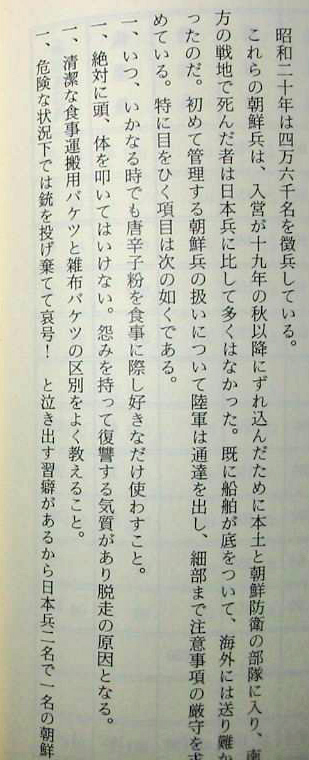 昭和二十年は四万六千名を徴兵している。
これらの朝鮮兵は、入営が十九年の秋以降にずれ込んだために本土と朝鮮防衛の部隊に入り、南
方の戦地で死んだ者は日本兵に比して多くはなかった。既に船舶が底をついて、海外には送り難か
ったのだ。初めて管理する朝鮮兵の扱いについて陸軍は通達を出し、細部まで注意事項の厳守を求
めている。特に目をひく項目は次の如くである。
一、いつ、いかなる時でも唐辛子粉を食事に際し好きなだけ使わすこと。
一、絶対に頭、体を叩いてはいけない。怨みを持って復讐する気質があり脱走の原因となる。
一、清潔な食事運搬用バケツと雑布バケツの区別をよく教えること。
一、危険な状況下では銃を投げ棄てて哀号！　と泣き出す習癖があるから日本兵二名で一名の朝鮮